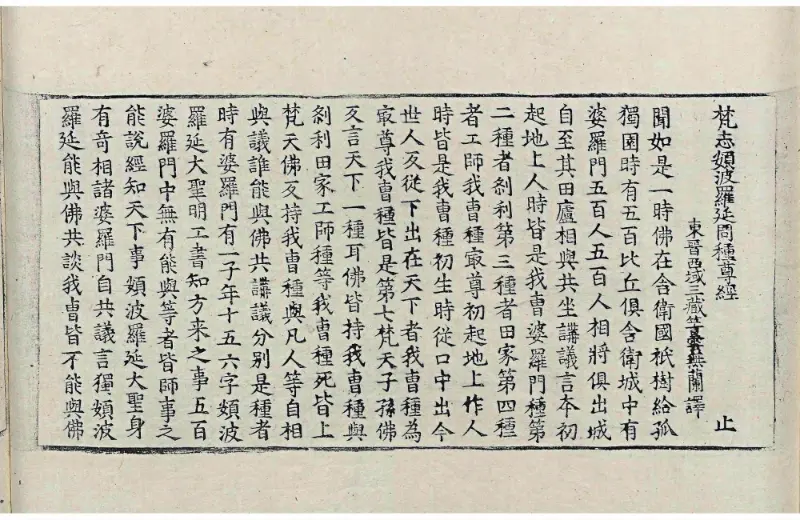 梵志頞波羅延問種尊經 止
東晉西域三藏竺曇無蘭譯
聞如是一時佛在舍衛國祇樹給孤
獨園時有五百比丘俱舍衛城中有
婆羅門五百人五百人相將俱出城
自至其田廬相與共坐講議言本初
起地上人時皆是我曹婆羅門種第
二種者刹利第三種者田家第四種
者工師我曹種㝡尊初起地上作人
時皆是我曹種初生時從口中出今
世人反從下出在天下者我曹種為
㝡尊我曹種皆是第七梵天子孫佛
反言天下一種耳佛皆持我曹種與
刹利田家工師種等我曹種死皆上
梵天佛反持我曹種與凡人等自相
與議誰能與佛共講議分別是種者
時有婆羅門有一子年十五六字頞波
羅延大聖明工書知方来之事五百
婆羅門中無有能與等者皆師事之
能說經知天下事頞波羅延大聖身
有奇相諸婆羅門自共議言獨頞波
羅延能與佛共談我曹皆不能與佛